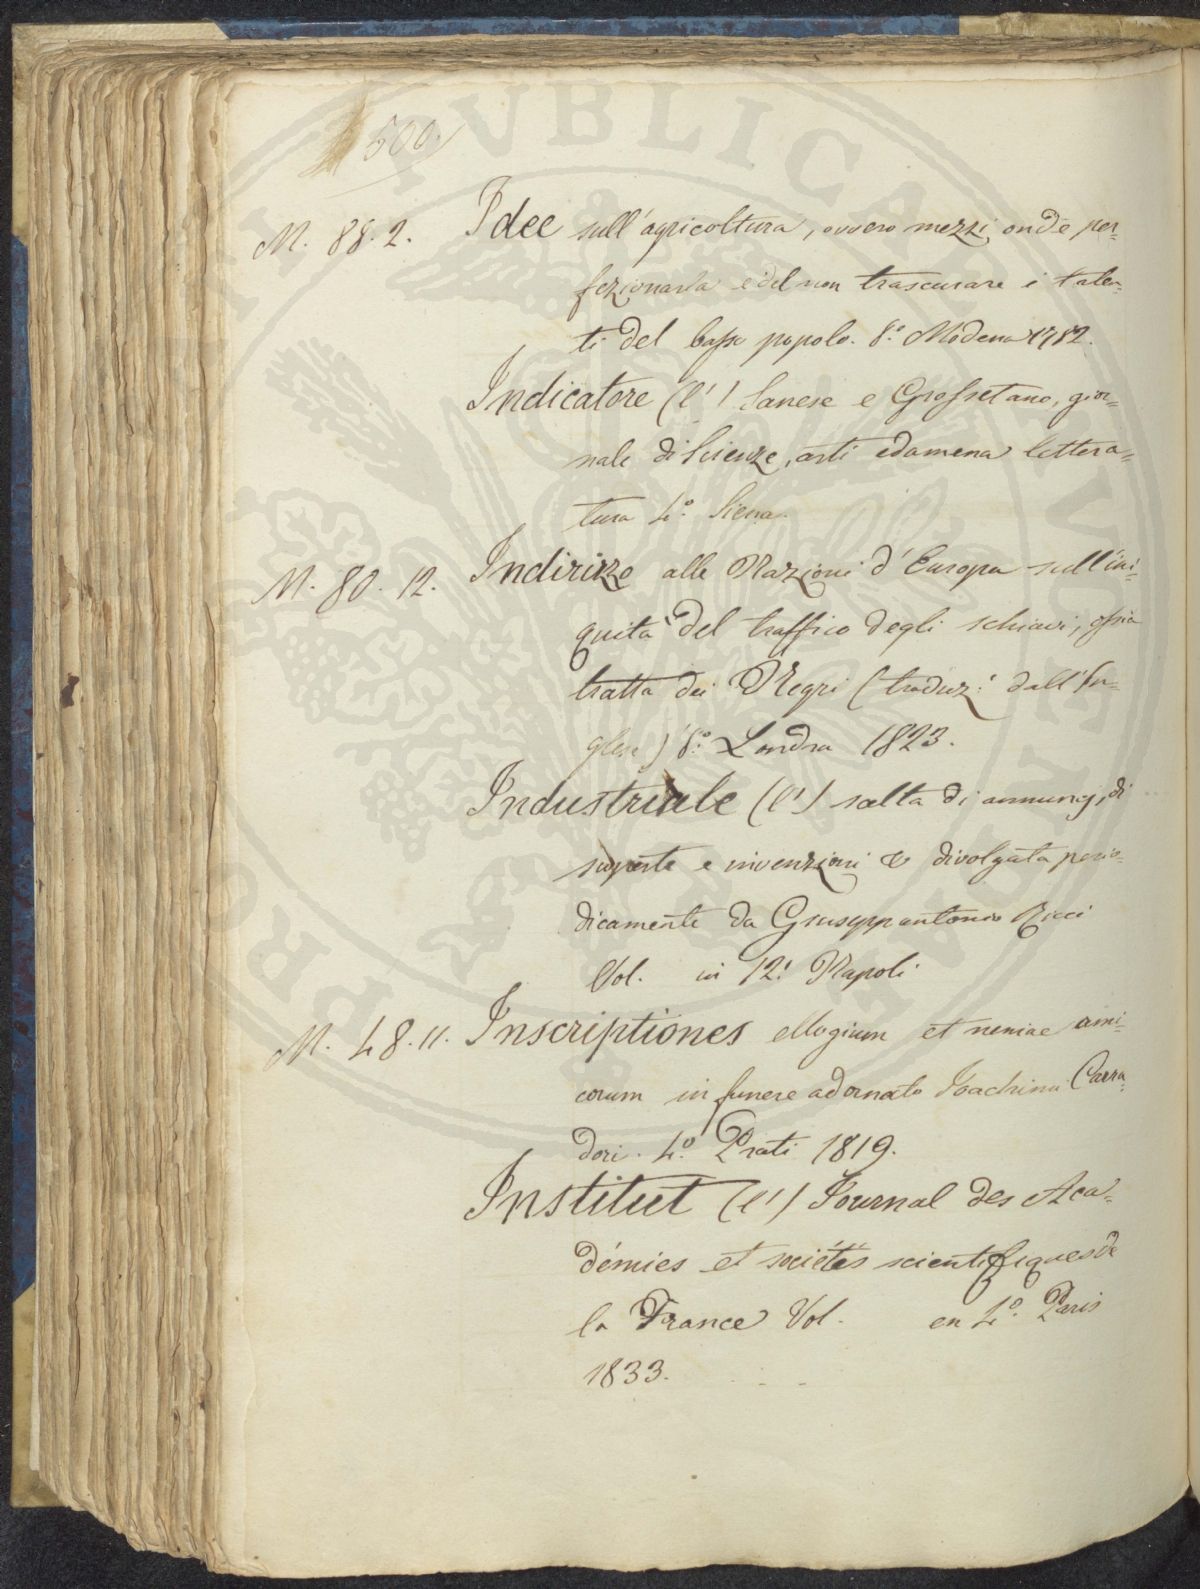 500.
M. 88. 2. Idee sull'agricoltura, ovvero mezzi onde per=
fezionarla e del non trascurare i talen=
ti del basso popolo. 8.º Modena 1782.
Indicatore (l') Sanese e Grossetano, gior=
nale di Scienze, arti ed amena lettera=
tura 4.º Siena.
M. 80. 12. Indirizzo alle Nazioni d'Europa sull'ini=
quità del traffico degli schiavi, ossia
tratta dei Negri (traduz.e dall'In=
glese) 8.º Londra 1823.
Industriale (l') scelta di annunzj, di
scoperte e invenzioni &c divolgata perio=
dicamente da Giuseppantonio Ricci
Vol. in 12.º Napoli
M. 48. 11. Inscriptiones ellogium et neniae ami=
corum in funere adornato Joachimi Carra=
dori. 4.º Prati 1819.
Institut (l') Journal des Aca=
démies et sociétés scientifiques de
la France Vol. en 4.º Paris
1833.